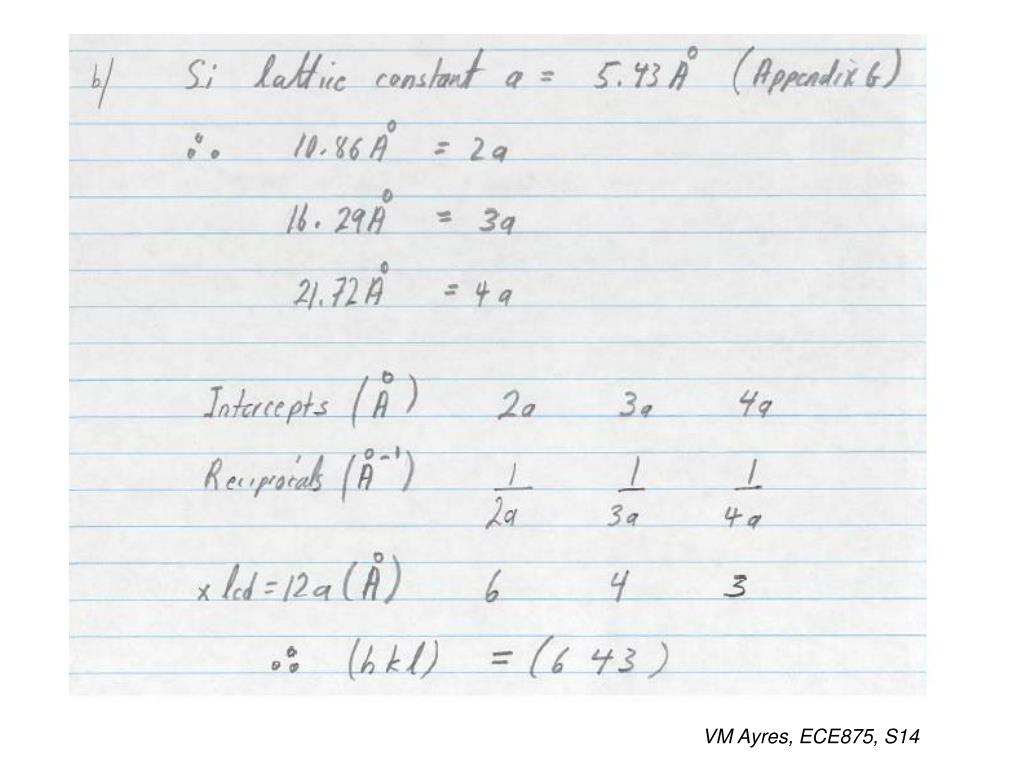 b/ Si lattice constant a = 5.43 Å (Appendix G)
∴ 10.86 Å = 2a
16.29 Å = 3a
21.72 Å = 4a
Intercepts (Å) 2a 3a 4a
Reciprocals (Å⁻¹) 1/2a 1/3a 1/4a
x lcd = 12a (Å) 6 4 3
∴ (hkl) = (6 4 3)
VM Ayres, ECE875, S14